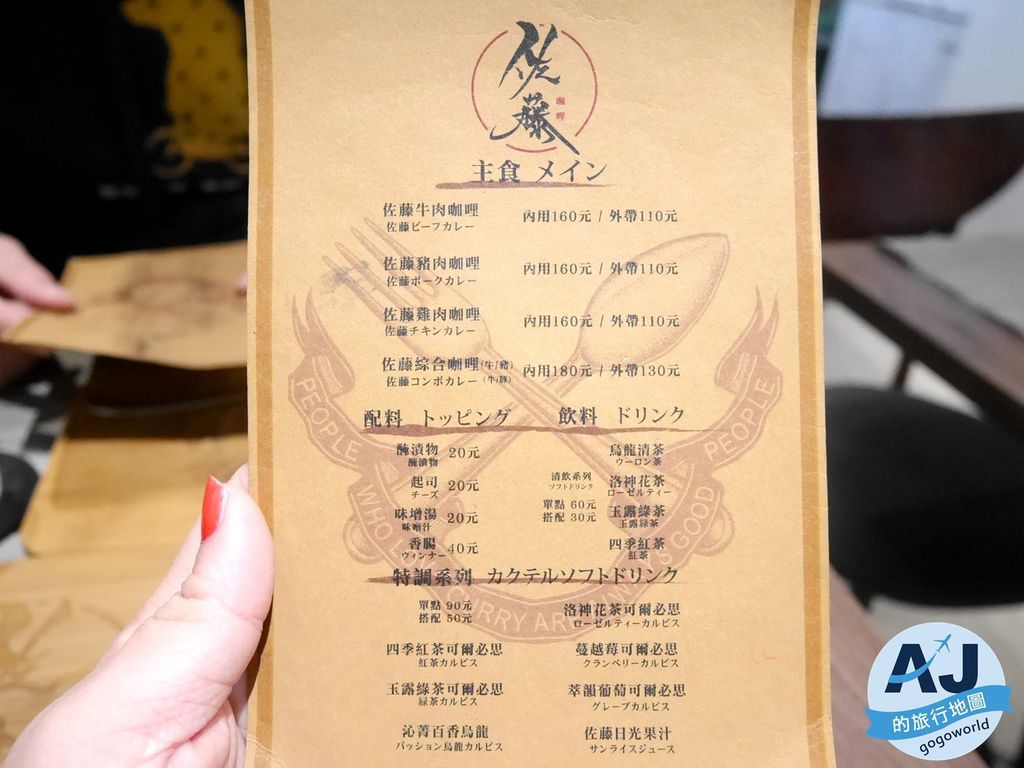 佐藤
咖哩
主食 メイン
佐藤牛肉咖哩 內用160元 / 外帶110元
佐藤ビーフカレー
佐藤豬肉咖哩 內用160元 / 外帶110元
佐藤ポークカレー
佐藤雞肉咖哩 內用160元 / 外帶110元
佐藤チキンカレー
佐藤綜合咖哩(牛/豬) 內用180元 / 外帶130元
佐藤コンボカレー (牛/豚)
配料 トッピング
醃漬物 20元
醃漬物
起司 20元
チーズ
味增湯 20元
味噌汁
香腸 40元
ウィンナー
飲料 ドリンク
清飲系列
ソフトドリンク
單點 60元
搭配 30元
烏龍清茶
ウーロン茶
洛神花茶
ローゼルティー
玉露綠茶
玉露緑茶
四季紅茶
紅茶
特調系列 カクテルソフトドリンク
單點 90元
搭配 50元
洛神花茶可爾必思
ローゼルティーカルピス
四季紅茶可爾必思
紅茶カルピス
蔓越莓可爾必思
クランベリーカルピス
玉露綠茶可爾必思
緑茶カルピス
萃韻葡萄可爾必思
グレープカルピス
沁菁百香烏龍
パッション烏龍カルピス
佐藤日光果汁
サンライスジュース
PEOPLE WHO CURRY ARE GOOD PEOPLE
AJ
的旅行地圖
gogoworld